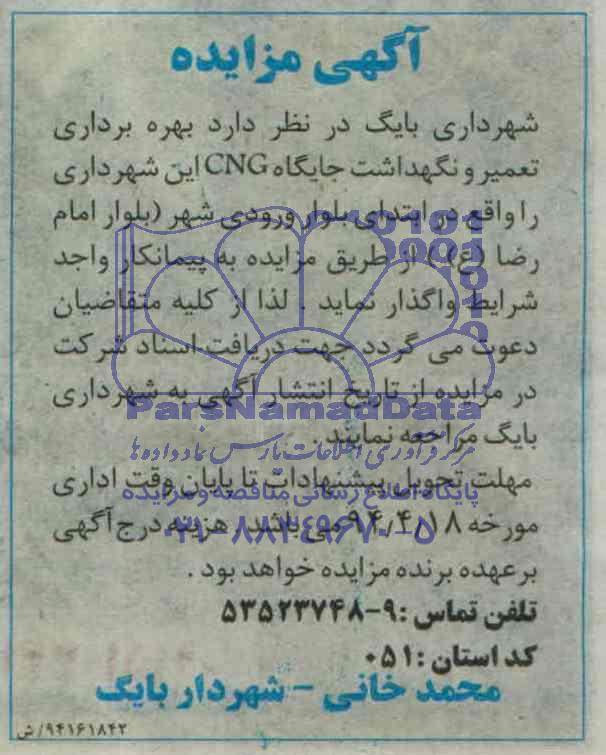 آگهی مزایده
شهرداری بایگ در نظر دارد بهره برداری
تعمیر و نگهداشت جایگاه CNG این شهرداری
را واقع در ابتدای بلوار ورودی شهر (بلوار امام
رضا (ع)) از طریق مزایده به پیمانکار واجد
شرایط واگذار نماید . لذا از کلیه متقاضیان
دعوت می گردد جهت دریافت اسناد شرکت
در مزایده از تاریخ انتشار آگهی به شهرداری
ParsNamadData
بایگ مراجعه نمایند .
مرکز فرآوری اطلاعات پارس نماد داده ها
مهلت تحویل پیشنهادات تا پایان وقت اداری
پایگاه اطلاع رسانی مناقصه و مزایده
مورخه ۹۴/۴/۱۸ می باشد . هزینه درج آگهی
۰۲۱-۸۸۳۴۹۶۷۰-۵
برعهده برنده مزایده خواهد بود .
تلفن تماس :۹-۵۳۵۲۳۷۴۸
کد استان :۰۵۱
محمد خانی - شهردار بایگ
۹۴۱۶۱۸۴۲/ش